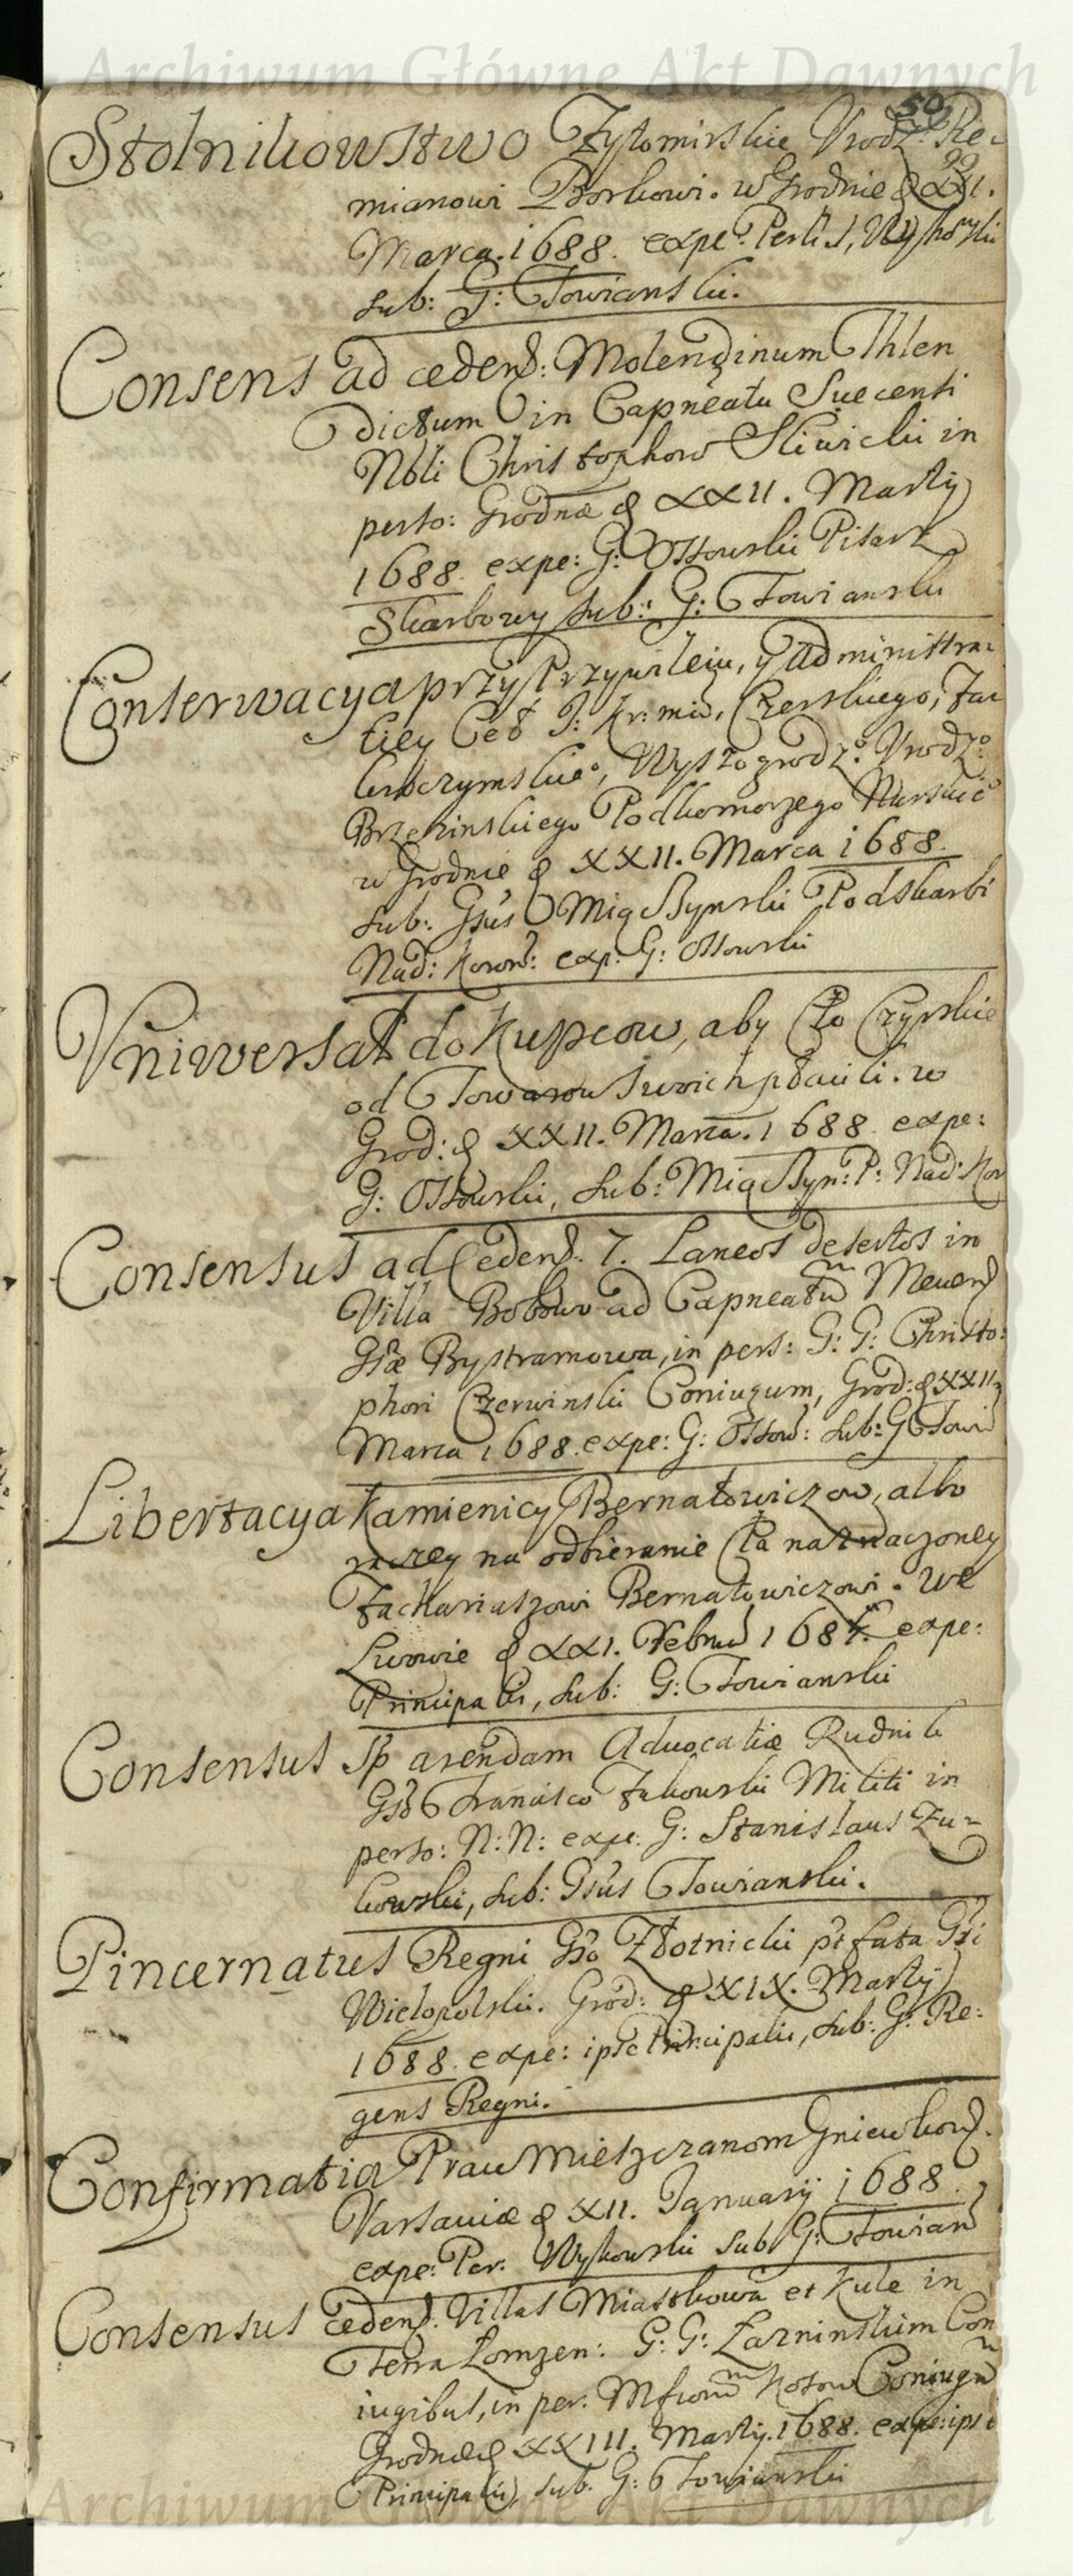 Archiwum Główne Akt Dawnych
50
99
Stolnikowstwo Zytomirskie Vrodz: Re-
mianowi Borkowi. w Grodnie d XXI.
Marca. 1688. expe:
sub: G: Towianski.
Consens ad cedend: Molendinum Thlen
dictum in Capneatu Suecensi
Nbli Christophoro Sliwicki in
perso: Grodnæ d XXII. Martij
1688. expe: G: Ossowski Pisarz
Skarbowy sub: G: Towianski
Conserwacya przy Przywileiu, y Administra-
tiey Ceł J: Kr: mci, Czerskiego, Za-
kroczymskie°, Wyszogrodz°. Vrodz°
Brzezinskiego Podkomorzego Nurskie°
w Grodnie d XXII. Marca 1688.
sub: Gsus Miączynski Podskarbi
Nad: Koron: exp: G: Ossowski
Vniwersał do Kupcow, aby Cło Czerskie
od Towarow swoich płacili. w
Grod: d XXII. Marca. 1688. expe:
G: Ossowski, sub: Miączyn: P: Nad: Kor
Consensus ad Cedend: 7. Laneos desertos in
Villa Bobowo ad Capneatum Meven
Gsæ Bystramowa, in pers: G: G: Christo:
phori Czerwinski Coniugum, Grod: d XXII
Marca 1688. expe: G: Ossow: sub: G Towia
Libertacya Kamienicy Bernatowiczow, albo
raczey na odbieranie Cła naznaczoney
Zachariaszowi Bernatowiczowi. We
Lwowie d XXI. Febru 168 expe:
Principalis, sub: G: Towianski
Consensus Sp arendam Advocatiæ Rudnik
Gso Francisco Zukowski Militi in
perso: N: N: expe: G: Stanislaus Zu-
kowski, sub: Gsus Towianski.
Pincernatus Regni Gso Złotnicki pt fata Gsi
Wielopolski. Grod: d XIX. Martij
1688. expe: ipse Principalis, sub: G: Re:
gens Regni.
Confirmatia Praw Mieszczanom Gniewkow.
Varsaviæ d XII. January 1688.
expe: Per: Wyskowski sub G: Towian
Consensus cedend: Villas Miastkowa et Kule in
Terra Lomzen: G: G: Zarninskim Con
iugibus, in per: Kotow Coniugu
Grodnæ d XXIII. Martij. 1688. expe: ipsi
Principalis, sub. G: Towianski
Archiwum Główne Akt Dawnych